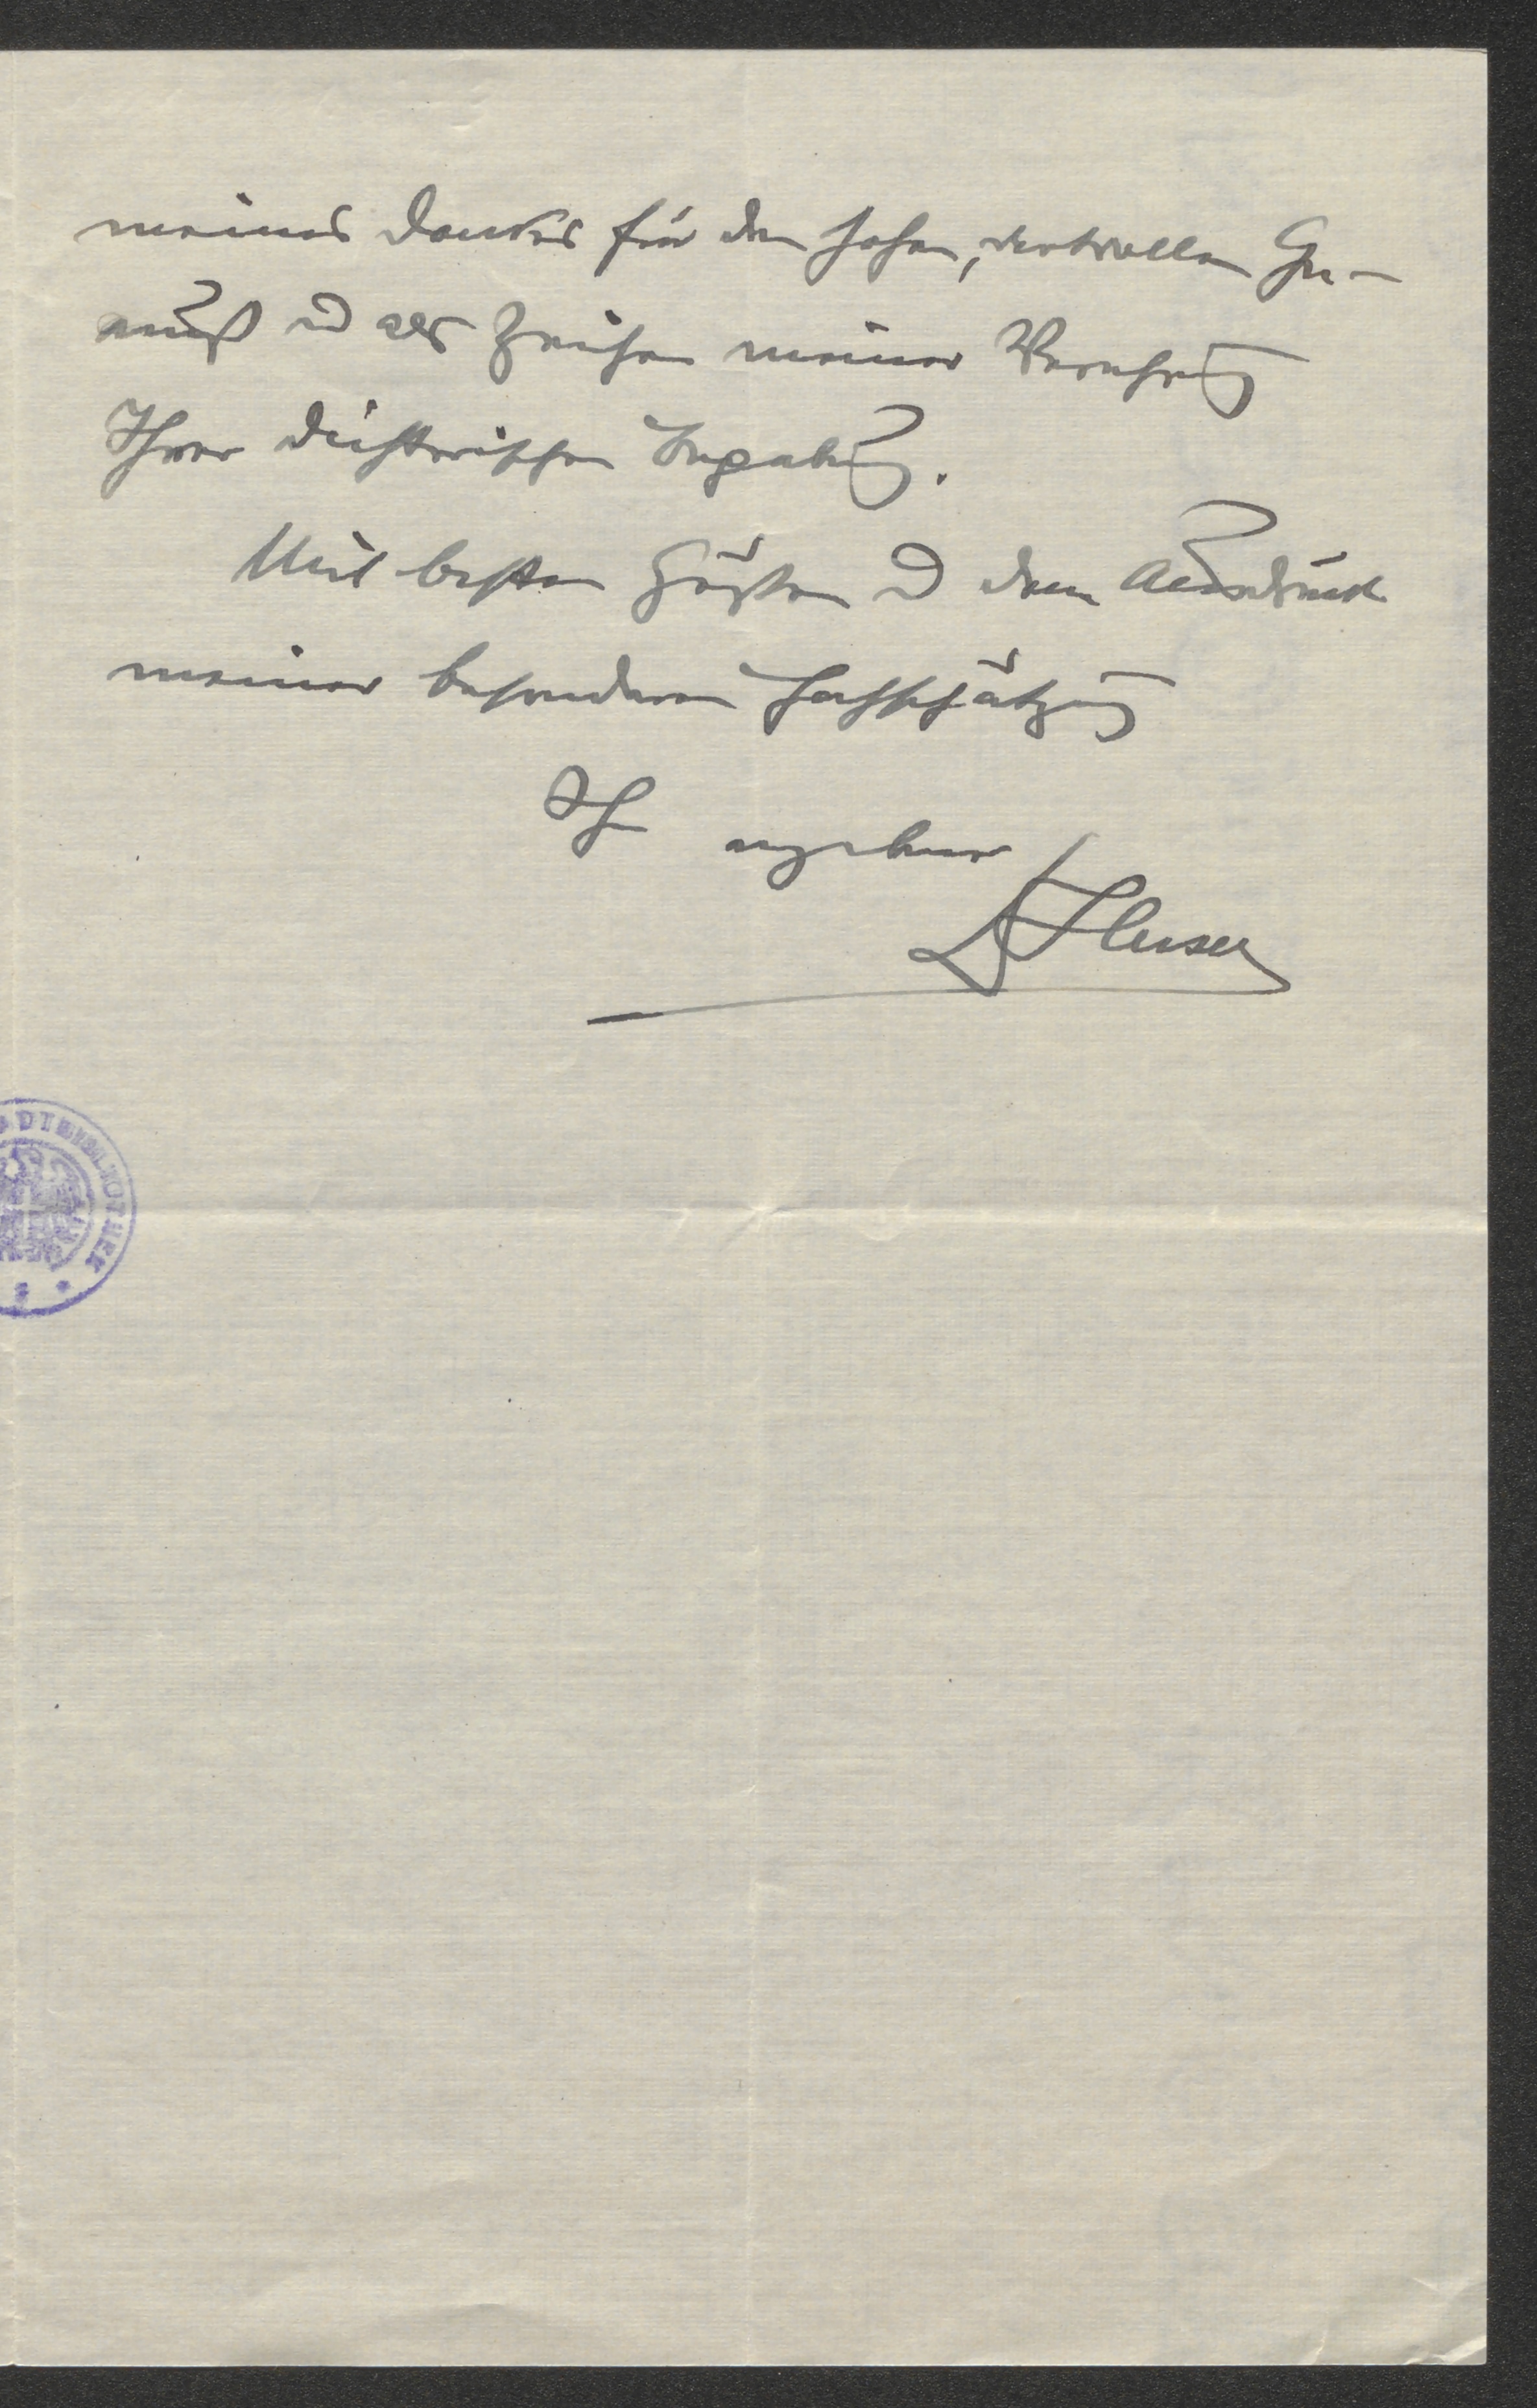 meines Dankes für den hohen, wertvollen Ge-
nuß u als Zeichen meiner Verehrung
Ihrer dichterischen Begabung.
Mit besten Grüßen u dem Ausdruck
meiner besonderen Hochschätzung
Ihr ergebener